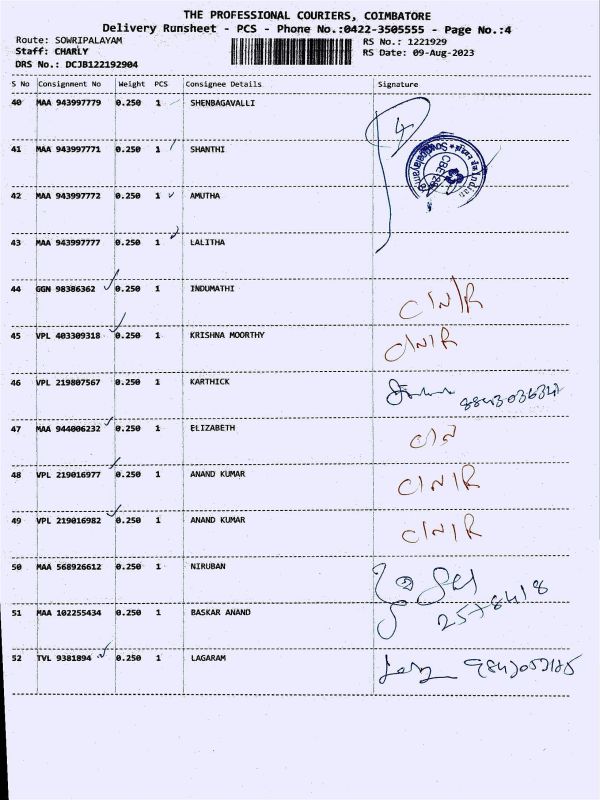 THE PROFESSIONAL COURIERS, COIMBATORE
Delivery Runsheet - PCS - Phone No.:0422-3505555 - Page No.:4
Route: SOWRIPALAYAM
Staff: CHARLY
DRS No.: DCJB122192904
RS No.: 1221929
RS Date: 09-Aug-2023
S No Consignment No Weight PCS Consignee Details Signature
40 MAA 943997779 0.250 1 SHENBAGAVALLI
4
41 MAA 943997771 0.250 1 SHANTHI
42 MAA 943997772 0.250 1 AMUTHA
43 MAA 943997777 0.250 1 LALITHA
44 GGN 98386362 0.250 1 INDUMATHI C/N/R
45 VPL 403309318 0.250 1 KRISHNA MOORTHY C/N/R
46 VPL 219807567 0.250 1 KARTHICK
47 MAA 944006232 0.250 1 ELIZABETH
48 VPL 219016977 0.250 1 ANAND KUMAR C/N/R
49 VPL 219016982 0.250 1 ANAND KUMAR C/N/R
50 MAA 568926612 0.250 1 NIRUBAN
2578418
51 MAA 102255434 0.250 1 BASKAR ANAND
52 TVL 9381894 0.250 1 LAGARAM